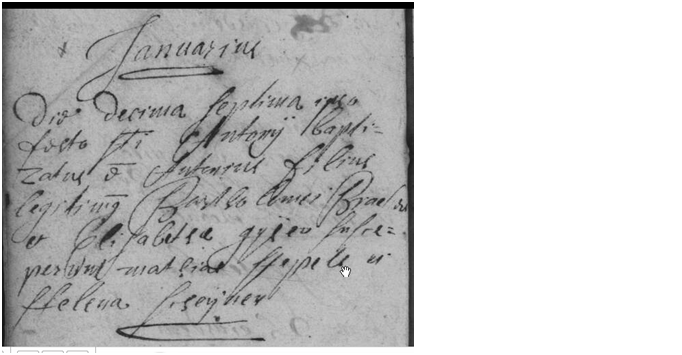 Januarius
Die decima septima ipso
festo sti Antonij bapti=
zatus e Antonius filius
legitimus Bartholomei
et Elisabethae gijsen susce=
perunt mathias et
Helena